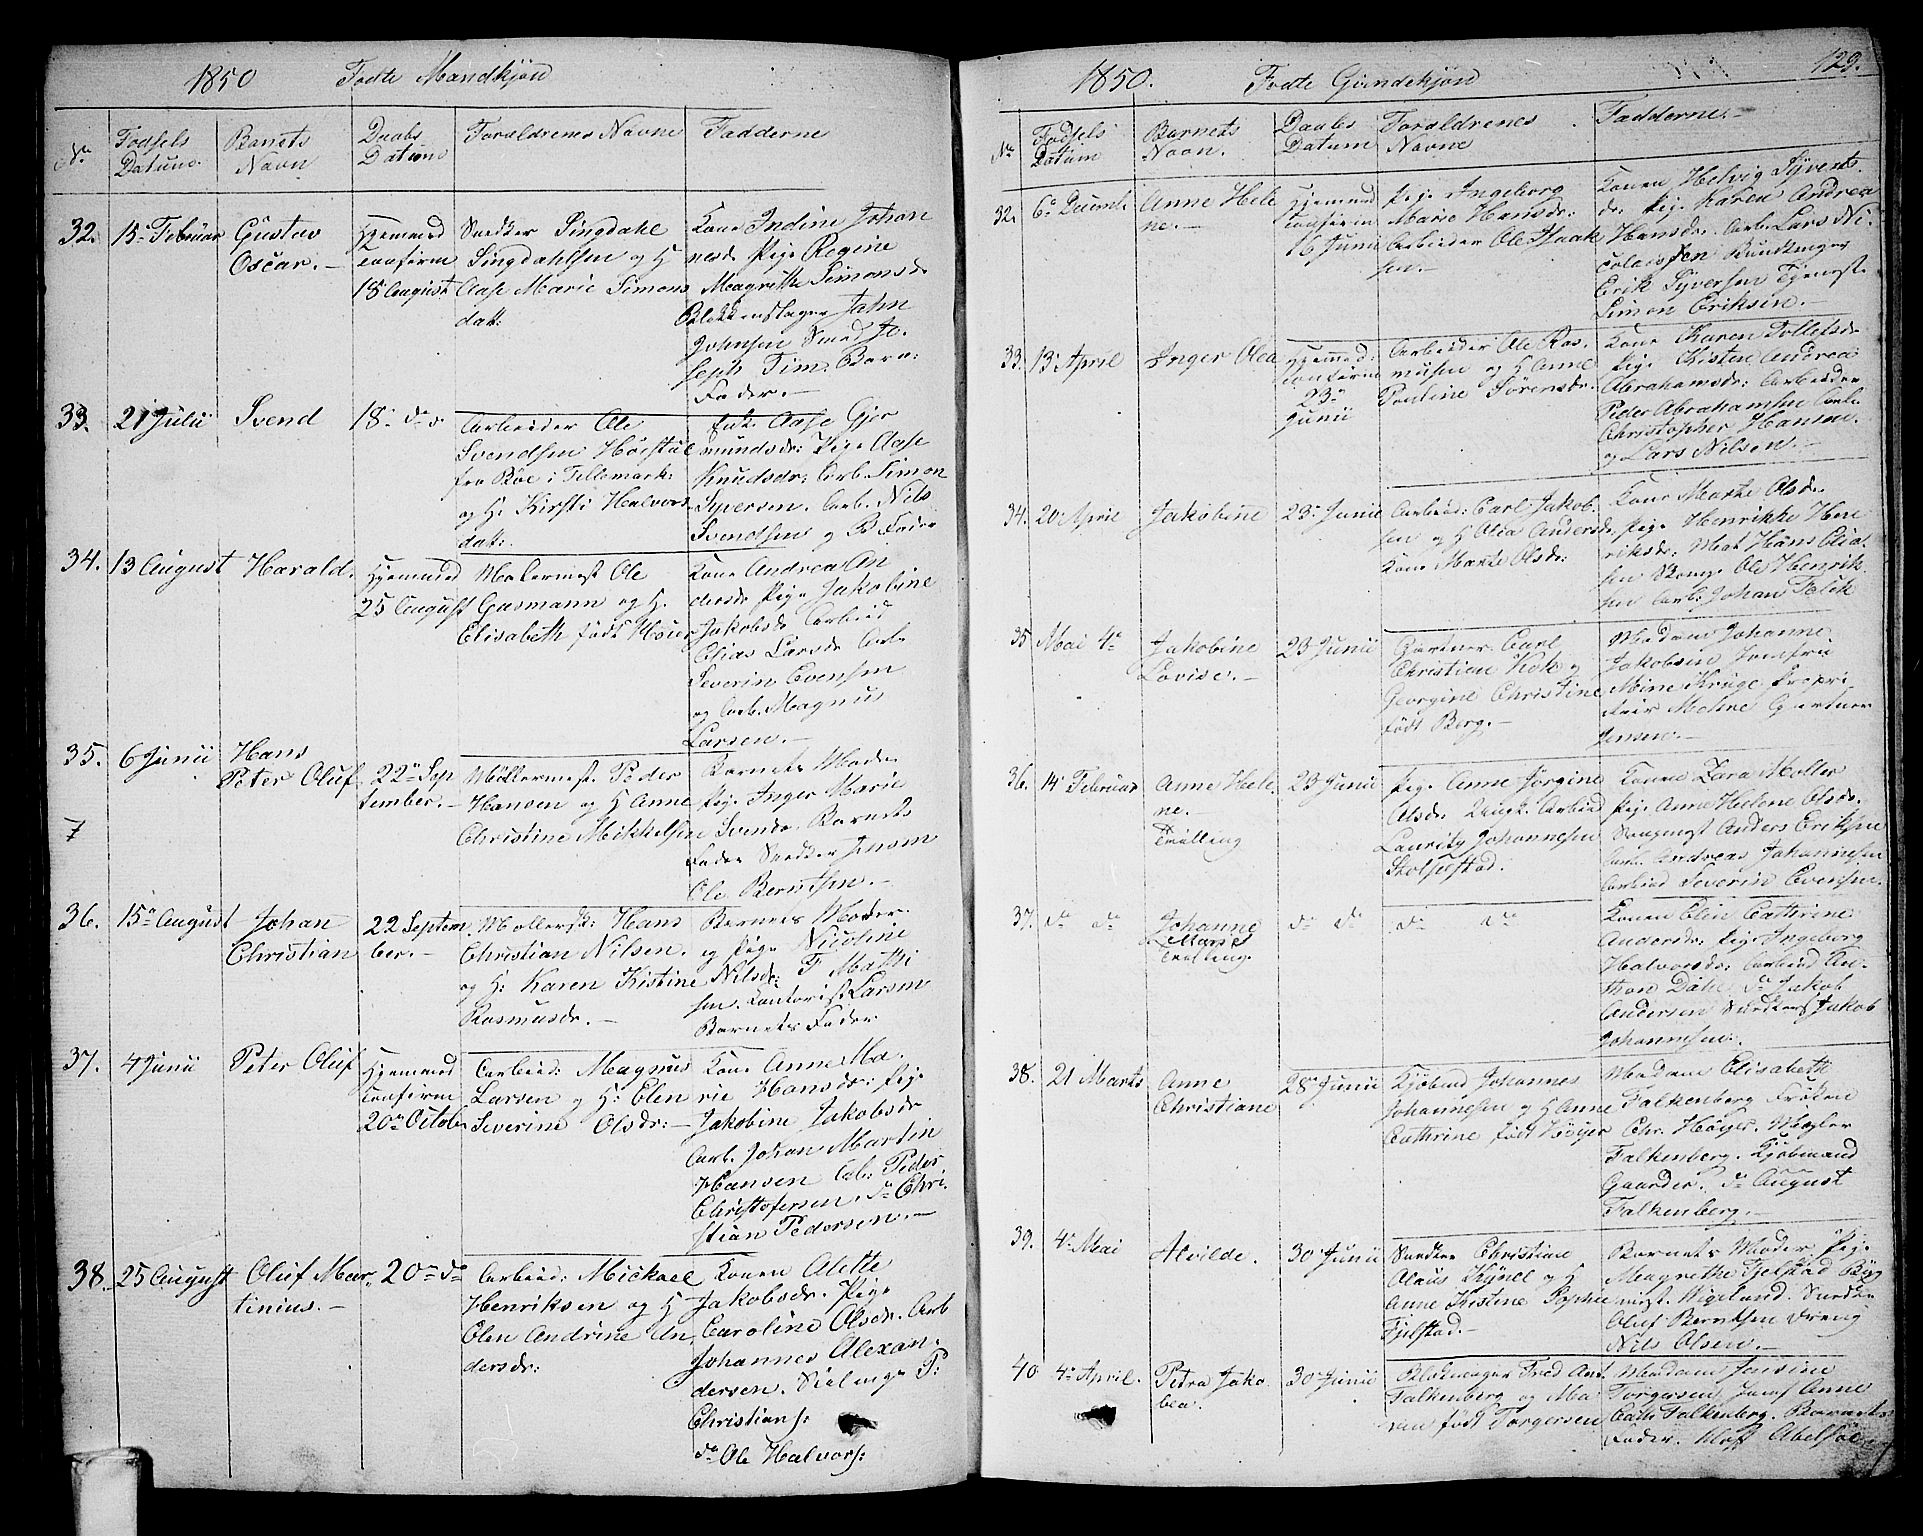 1850 Fødte Mandkjøn
No
Fødsels
Datum
Barnets
Navn
Daabs
Datum
Forældrenes Navne
Fadderne
32. 15 Februar
Gustav
Oscar. —
Hjemmed
confirm
18 August
Snedker Singdahl
Singdahlsen og H
Aase Marie Simons
datt:
Kone Indine Johan
nesd: Pige Regine
Magrethe Simonsd
Blikkenslager Jahn
Johnsen Smed Jo
seph Tim, Barn:
Fader. —
33. 21 Julii
Svend
18 do
Arbeider Ole
Svendsen
fra Bøe i Tellemark:
og H: Kirsti Halvors
datt:
Enk: Aase Gjer
mundsdr: Pige Aase
Knudsdr: Arb. Simon
Syversen. Arb. Nils
Svendsen og B Fader
34. 13 August
Harald.
Hjemmed
25 August
Malermest Ole
Gusmann og H.
Elisabeth født Høier
Kone Andrea An
dersd Pige Jakobine
Jakobsd: Arbeid
Elias Larsd Arb
Severin Evensen
og Arb. Magnus
Larsen. —
35. 6 Junii
Hans
Peter Oluf
22 Sep
tember. —
Møllermest. Peder
Hansen og H Anne
Christine Mikkelsen
Barnets Moder
Pige Inger Marie
Svends. Barnets
Fader Snedker
Ole Berntsen. —
7
36. 15 August
Johan
Christian
22 Septem
ber. —
Møllersk: Hans
Christian Nilsen.
og H: Karen Kistine
Rasmusdr. —
Barnets Moder.
og Pige Nicoline
Nilsdr: F Matti
sen. Kontorist Larsen
Barnets Fader
37. 4 Junii
Peter Oluf
Hjemmed
confirm
20 Octob
Arbeid: Magnus
Larsen og H: Elen
Severine Olsdr: —
Kone Anne Ma
rie Hansdr: Pige
Jakobine Jakobsdr
Arb. Johan Martin
Hansen Arb: Peder
Christofersen. do Chri
stian Pedersen. —
38. 25 August
Oluf Mar
tinius. —
20 do
Arbeid: Mickael
Henriksen og H
Olen Andrine An
dersdr:
Konen Alette
Jakobsdr. Pige
Caroline Olsdr. Arb
Johannes Alexan
dersen. P:
Christians:
do Ole Halvors:
1850. Fødte Qvindekjøn 129.
No
Fødsels
Datum
Barnets
Navn.
Daabs
Datum
Forældrenes
Navne
Fadderne. —
32. 6 Decemb
Anne Hele
ne. —
Hjemmed
confirm
16 Junii
Pige Ingeborg
Marie Hansdr:
Arbeider Ole Isaak
sen. —
Konen Helvig Syverts
dr: Pige Karen Andrea
Hansdr. Arb. Lars Ni
colaisen Buntmager
Erik Syversen Tjenest
Simon Eriksen. —
33. 13 April
Inger Olea
Hjemmed:
confirm
23
Junii
Arbeider Ole Ras
musen og H Anne
Pauline Sørensdr.
Kone Karen Tollefsdr
Pige Kisten Andrea
Abrahamsdr: Arbeider
Peder Abrahamsen Arb
Christopher Hansen.
og Lars Nilsen. —
34. 20 April
Jakobine
23 Junii
Arbeid: Carl Jakob
sen og H Olea Andersdr
Kone Marte Olsdr:
Kone Marte Olsdr.
Pige Henrikke Hen
riksdr: Mat Hans Elia
sen Skomg. Ole Henrik
sen Arb: Johan Falk
35 Mai 4
Jakobine
Lovise. —
23 Junii
Gartner Carl
Christian Kok og
Georgine Christine
født Berg. —
Madam Johanne
Jakobsen Jomfru
Mine Kruge Propri
etair Moline Gartner
Jensen. —
36. 14 Februar
Anne Hele
ne. —
Tvilling
23 Junii
Pige Anne Jørgine
Olsdr. Arbeid
Lauritz Johannesen
Stolpestad.
Konne Zara Møller
Pige Anne Helene Olsdr.
Skomgmest Anders Eriksen
Arb. Andreas Johannesen
Arbeid Severin Evensen.
37. do do
Johanne
Marie
Tvilling.
do do
do do
Konen Elin Cathrine
Andersdr: Pige Ingeborg
Halvorsdr: Arbeid An
thon Dahl do Jakob
Andersen Snedkers Jakob
Johannesen.
38. 21 Marts
Anne
Christiane
28 Junii
Kjøbmd Johannes
Johannesen og H Anne
Cathrine født Høyer
Madam Elisabeth
Falkenberg Frøken
Chr. Høyer. Mægler
Falkenberg. Kjøbmand
Gaarder. do August
Falkenberg. —
39. 4 Mai
Alvilde.
30 Junii
Snedker Christian
Olaus Kynel og H
Anne Kistine Sophie
Fjelstad. —
Barnets Moder. Pige
Magrethe Fjelstad Byg
mest. Wigeland. Snedker
Oluf Berntsen Dreng
Nils Olsen. —
40 4 April.
Petra Jako
bea.
30 Junii
Fred Ant
Falkenberg og Ma
ren født Torgersen
Madam Jensine
Torgersen Jomf Anne
Cath Falkenberg. Barnets
Fader. Abelsøe